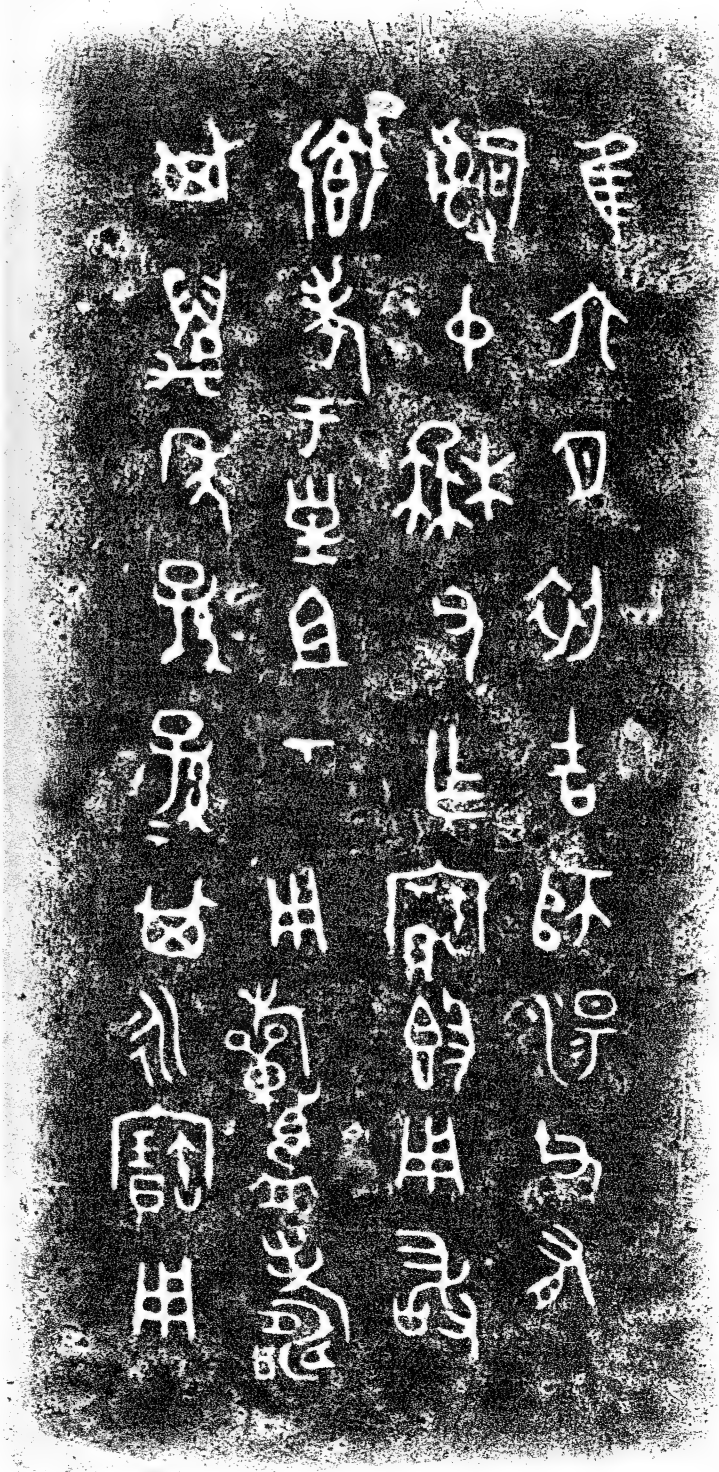 隹六月初吉師湯父有
𤔲中枏父乍寶𣪘用敢
鄉孝于皇且丂用旂眉壽
其萬年子=孫=其永寶用